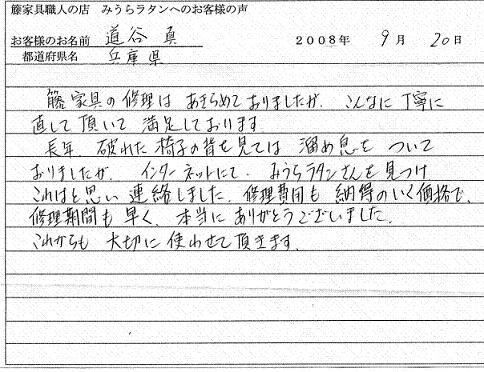 籐家具職人の店 みうらラタンへのお客様の声
お客様のお名前 道谷 真 2008年 9月 20日
都道府県名 兵庫県
籐家具の修理は あきらめておりましたが、こんなに丁寧に
直して頂いて 満足しております。
長年、破れた椅子の背を見ては 溜め息を ついて
おりましたが、インターネットにて、みうらラタンさんを見つけ
これはと思い 連絡しました。修理費用も 納得のいく価格で、
修理期間も早く、本当に ありがとうございました。
これからも 大切に使わせて頂きます。